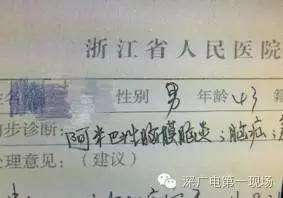 浙江省人民医院
性别 男 年龄 43 籍
步诊断: 阿米巴性脑膜脑炎;脑疝;
处理意见:(建议)
深广电第一现场